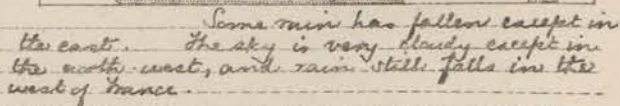 Some rain has fallen except in
the east. The sky is very cloudy except in
the north-west, and rain still falls in the
west of France.